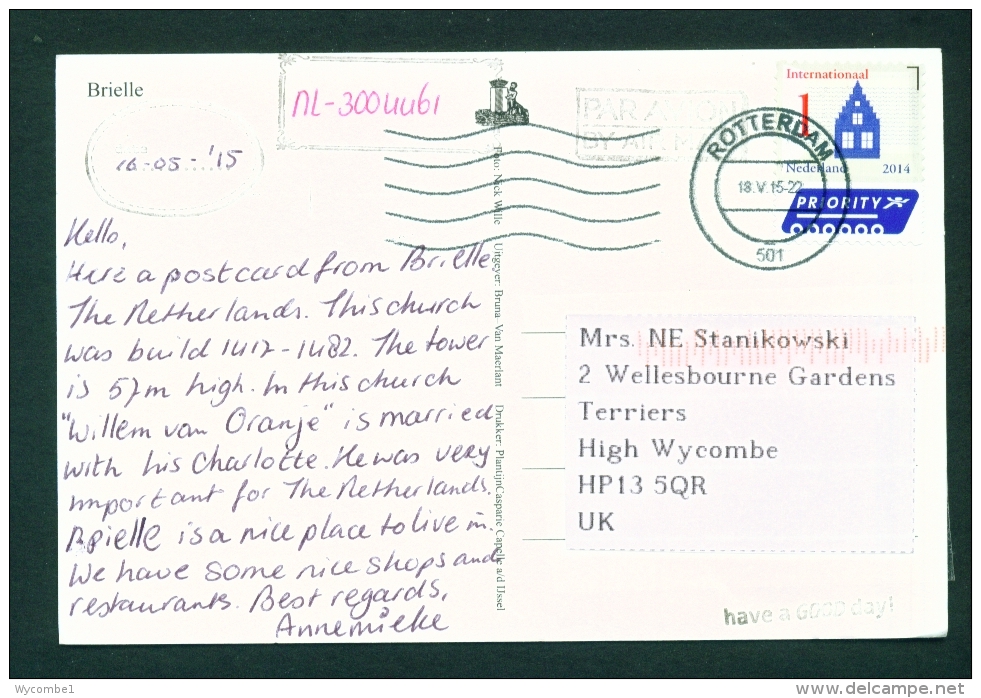 Brielle
NL-3004461
PAR AVION
BY AIR MAIL
Internationaal
1
Nederland 2014
PRIORITY
ROTTERDAM
18.V.15-22
501
16-05-'15
Hello,
Here a postcard from Brielle,
The Netherlands. This church
was build 1417-1482. The tower
is 57m high. In this church
"Willem van Oranje" is married
with his Charlotte. He was very
important for The Netherlands.
Brielle is a nice place to live in.
We have some nice shops and
restaurants. Best regards,
Annemieke
Foto: Nick Wille Uitgever: Bruna - Van Maerlant Drukker: PlantijnCasparie Capelle a/d IJssel
Mrs. NE Stanikowski
2 Wellesbourne Gardens
Terriers
High Wycombe
HP13 5QR
UK
have a GOOD day!
Wycombe1
www.delcampe.net